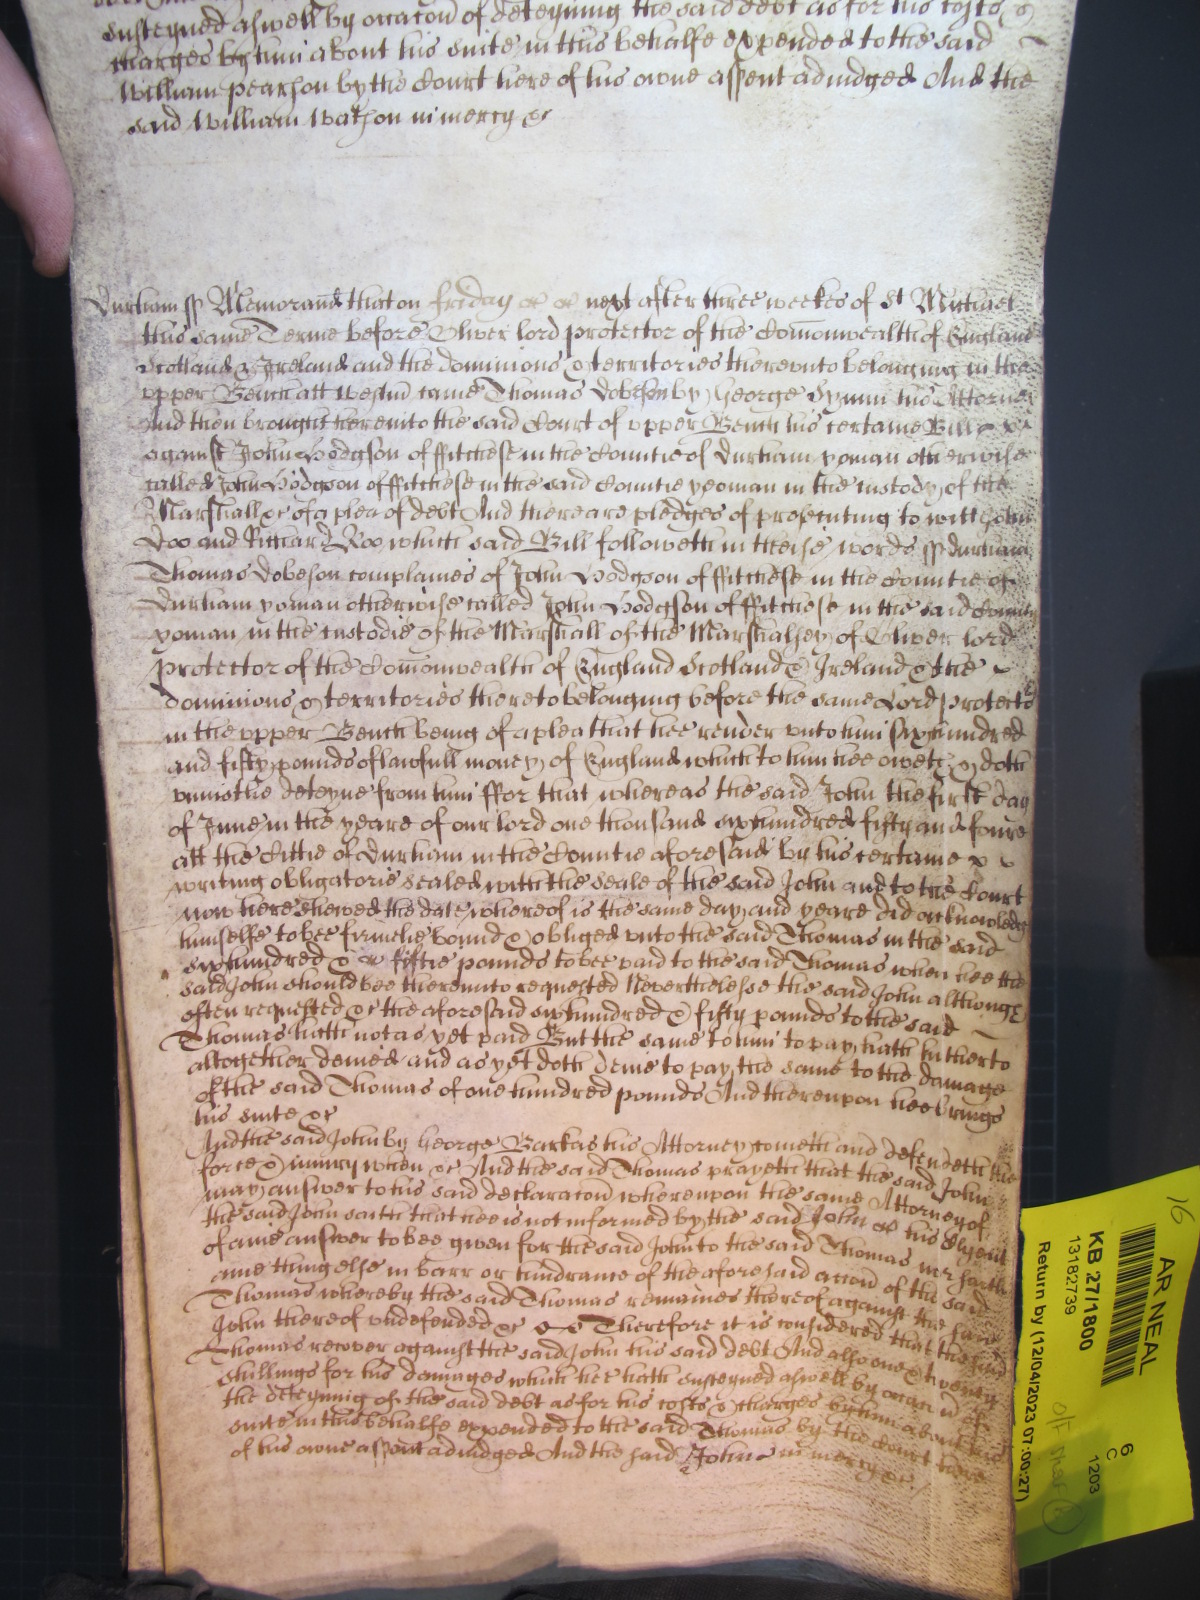 susteyned aswell by occacon of deteyning the said debt as for his costs &
charges by him about his suite in this behalfe expended to the said
William Pearson by the Court here of his owne assent adiudged And the
said William Watson in mercy &c
Durham ss Memorand that on friday next after three weekes of St Michael
this same Terme before Oliver lord protector of the Comonwealth of England
Scotland & Ireland and the dominions & territories thereunto belonging in the
upper Bench att Westm came Thomas Dobeson by George Symm his Attorney
And then brought here into the said Court of upper Bench his certaine Bill
against John Hodgson of ffitchese in the Countie of Durham yoman otherwise
called John Hodgson of ffitchese in the said Countie yeoman in the custody of the
Marshall &c of a plea of debt And there are pledges of prosecuting to witt John
Doo and Richard Roo which said Bill followeth in theise words ss Durham
Thomas Dobeson complaines of John Hodgson of ffitchese in the Countie of
Durham yoman otherwise called John Hodgson of ffitchese in the said County
yoman in the custodie of the Marshall of the Marshalsey of Oliver lord
protector of the Comonwealth of England Scotland & Ireland & the
dominions & territories thereto belonging before the same Lord protector
in the upper Bench being of a plea that hee render unto him sixhundred
and fifty pounds of lawfull money of England which to him hee oweth & doth
uniustlie deteyne from him ffor that whereas the said John the first day
of June in the yeare of our lord one thousand sixhundred fifty and foure
att the Cittie of Durham in the Countie aforesaid by his certaine
writing obligatorie sealed with the seale of the said John and to the Court
now here shewed the date whereof is the same day and yeare did acknowledg
himselfe to bee firmelie bound & obliged unto the said Thomas in the said
sixhundred & fiftie pounds to bee paid to the said Thomas when hee the
said John should bee thereunto requested Neverthelesse the said John although
often requested &c the aforesaid sixhundred & fifty pounds to the said
Thomas hath not as yet paid But the same to him to pay hath hitherto
altogether denied and as yet doth denie to pay the same to the damage
of the said Thomas of one hundred pounds And thereupon hee brings
his suite &c
And the said John by George Barkas his Attorney cometh and defendeth the
force & iniury when &c And the said Thomas prayeth that the said John
may answer to his said declaracon whereupon the same Attorney of
the said John saith that hee is not informed by the said John his Clyent
of anie answer to bee given for the said John to the said Thomas nor saith
anie thing else in barr or hindrance of the aforesaid accon of the said
Thomas whereby the said Thomas remaines thereof against the said
John thereof undefended &c Therefore it is considered that the said
Thomas recover against the said John his said debt And also one & twenty
shillings for his damages which hee hath susteyned aswell by occacon of
the deteynig of the said debt as for his costs & charges by him about his
suite in this behalfe expended to the said Thomas by the Court here
of his owne assent adiudged And the said John in mercy &c
AR NEAL
KB 27/1800
13182739
Return by (12/04/2023 07:00:27)
6
C
1203
16